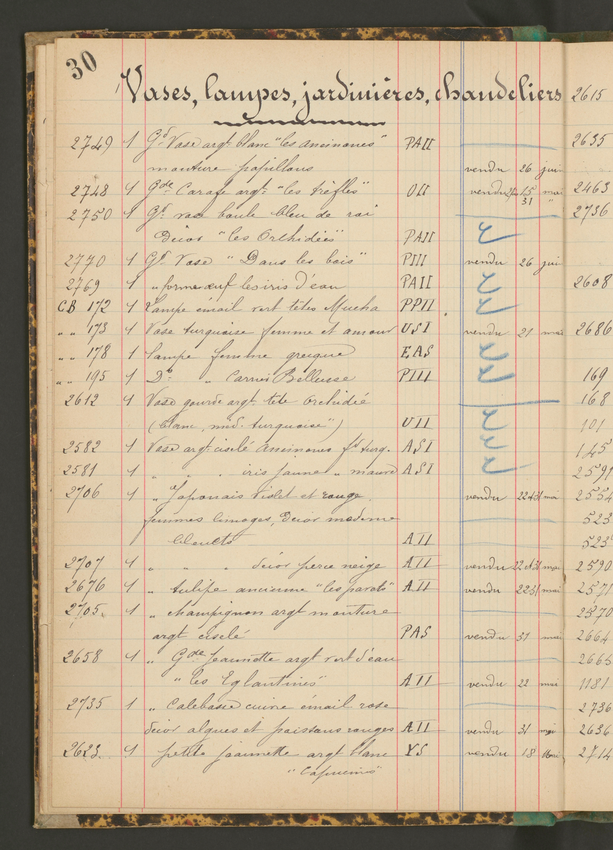 30
Vases, lampes, jardinières, chandeliers
2749 1 Gd Vase argt blanc "les anémones" PAII
monture papillons vendu 26 juin
2748 1 Gde Carafe argt "les trèfles" OII vendu 15 mai
31 "
2750 1 Gd vase boule bleu de roi
décor "les Orchidées" PAII
2770 1 Gd Vase "Dans les bois" PIII vendu 26 juin
2769 1 " forme œuf les iris d'eau PAII
CB 172 1 Lampe émail vert têtes Mucha PPII
" " 173 1 Vase turquoise femme et amour USI vendu 21 mai
" " 178 1 Lampe femme grecque EAS
" " 195 1 Do " Carrier Belleuse PIII
2612 1 Vase gourde argt tête Orchidée
(blanc, turquoise") UII
2582 1 Vase argt ciselé anémones fd turq. ASI
2581 1 " " " iris jaune " mauve ASI
2706 1 " Japonais violet et rouge vendu 22 et 31 mai
femmes limoges, décor moderne
bleuets AII
2707 1 " " " décor perce neige AII vendu 22 et 31 mai
2676 1 " tulipe ancienne "les pavots" AII vendu 22 31 mai
2705 1 " champignon argt monture
argt ciselé PAS vendu 31 mai
2658 1 " Gde Jeannette argt vert d'eau
" "les Eglantines" AII vendu 22 mai
2735 1 " Calebasse cuivre émail rose
décor algues et poissons rouges AII vendu 31 mai
2623 1 " petite jeannette argt blanc YS vendu 18 mai
"Capucines"
2615
2635
2463
2736
2608
2686
169
168
101
145
2591
2554
523
525
2590
2571
2570
2664
2665
1181
2736
2636
2714